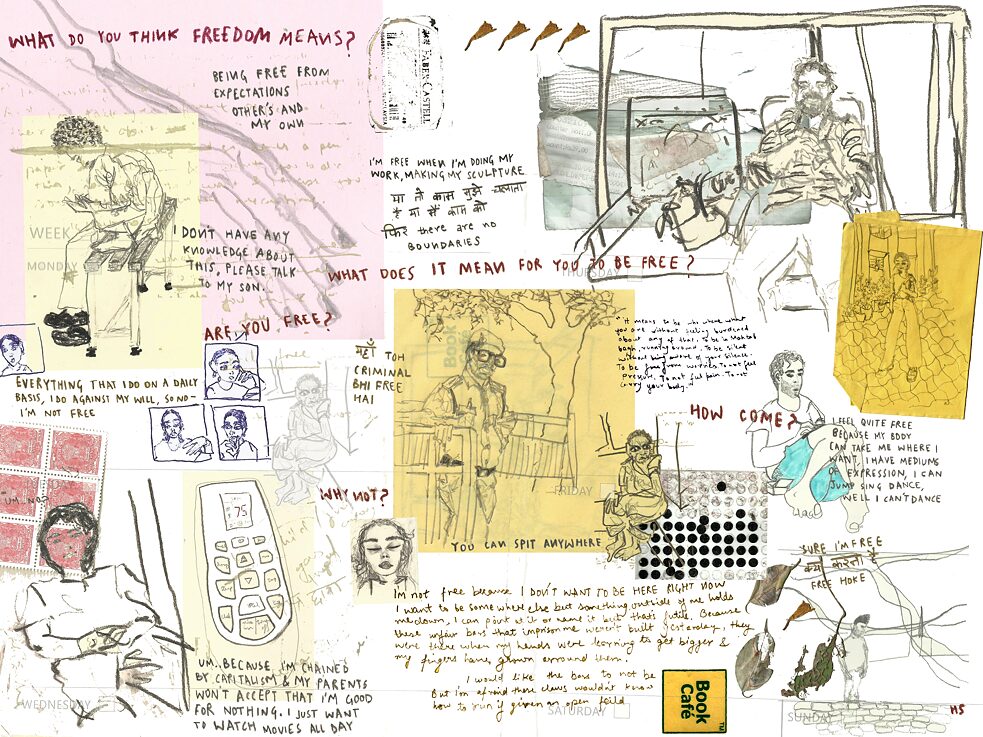 WHAT DO YOU THINK FREEDOM MEANS?
BEING FREE FROM
EXPECTATIONS
OTHER'S AND
MY OWN
FABER-CASTELL
I'M FREE WHEN I'M DOING MY
WORK, MAKING MY SCULPTURE
या तो काम मुझे चलाता
है या मैं काम को
फिर there are no
BOUNDARIES
WEEK
MONDAY
I DON'T HAVE ANY
KNOWLEDGE ABOUT
THIS, PLEASE TALK
TO MY SON..
THURSDAY
WHAT DOES IT MEAN FOR YOU TO BE FREE?
ARE YOU FREE?
EVERYTHING THAT I DO ON A DAILY
BASIS, I DO AGAINST MY WILL, SO NO-
I'M NOT FREE
यहाँ TOH
CRIMINAL
BHI FREE
HAI
Book
"It means to be who where what
you are without feeling burdened
about any of that. To be in
bagh, running around. To be silent
without being aware of your silence.
To be free from worries. To not feel
pressure, to not feel pain. To not
carry your body."
HOW COME?
I FEEL QUITE FREE
BECAUSE MY BODY
CAN TAKE ME WHERE I
WANT, I HAVE MEDIUMS
OF EXPRESSION, I CAN
JUMP SING DANCE,
WELL I CAN'T DANCE
UM.. NO?
75
WHY NOT?
FRIDAY
YOU CAN SPIT ANYWHERE
UM.. BECAUSE I'M CHAINED
BY CAPITALISM & MY PARENTS
WON'T ACCEPT THAT I'M GOOD
FOR NOTHING. I JUST WANT
TO WATCH MOVIES ALL DAY
WEDNESDAY
Im not free because I DON'T WANT TO BE HERE RIGHT NOW
I want to be some where else but something outside of me holds
me down, I can point at it or name it but thats futile. Because
these unfair bars that imprison me weren't built yesterday, they
were there when my hands were learning to get bigger &
my fingers have grown arround them.
I would like the bars to not be
But I'm afraid these claws wouldn't know
how to run if given an open feild
SATURDAY
Book
Café
TM
SURE I'M FREE
क्या करोगी
FREE HOKE
SUNDAY
HS